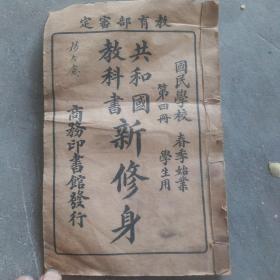 教育部審定
國民學校 春季始業
第四冊 學生用
共和國
教科書
新修身
商務印書館發行